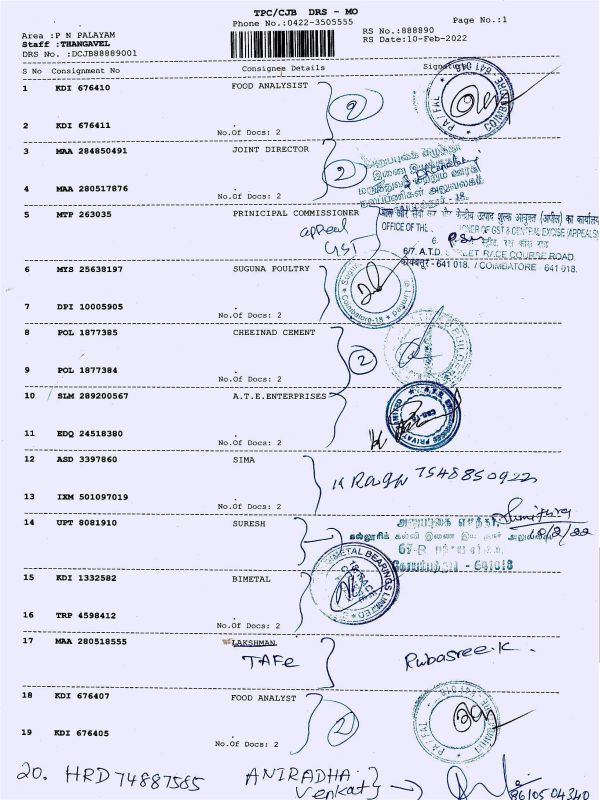 TPC/CJB DRS - MO
Phone No.:0422-3505555
Page No.:1
Area :P N PALAYAM
RS No.:888890
Staff :THANGAVEL
RS Date:10-Feb-2022
DRS No. :DCJB88889001
S No Consignment No Consignee Details Signature
1 KDI 676410 FOOD ANALYSIST
2
2 KDI 676411
No.Of Docs: 2
3 MAA 284850491 JOINT DIRECTOR
2
4 MAA 280517876
No.Of Docs: 2
5 MTP 263035 PRINICIPAL COMMISSIONER
appeal
GST
OFFICE OF THE GST & CENTRAL EXCISE (APPEALS)
6/7, A.T.D. STREET RACE COURSE ROAD,
641 018. / COIMBATORE 641 018.
6 MYS 25638197 SUGUNA POULTRY
7 DPI 10005905
No.Of Docs: 2
8 POL 1877385 CHEEINAD CEMENT
2
9 POL 1877384
No.Of Docs: 2
10 SLM 289200567 A.T.E.ENTERPRISES
11 EDQ 24518380
No.Of Docs: 2
12 ASD 3397860 SIMA
K Ragu 7548850922
13 IXM 501097019
No.Of Docs: 2
14 UPT 8081910 SURESH
10/2/22
641018
BIMETAL BEARINGS LIMITED
15 KDI 1332582 BIMETAL
16 TRP 4598412
No.Of Docs: 2
17 MAA 280518555 LAKSHMAN
TAFe
Rubasree.K.
18 KDI 676407 FOOD ANALYST
2
19 KDI 676405
No.Of Docs: 2
20. HRD 74887585 ANIRADHA
Venkat
8610504340